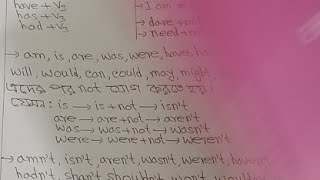 have + V₃
has + V₃
had + V₃
→ I am
→ dare + no
→ need +
→ am, is, are, was, were, have, ha
will, would, can, could, may, might
এদের পর not যোগ করতে হয়।
যেমন: is → is + not → isn't
are → are + not → aren't
was → was + not → wasn't
were → were + not → weren't
→ amn't, isn't, aren't, wasn't, weren't, haven
hadn't, shan't, shouldn't, won't, wouldn